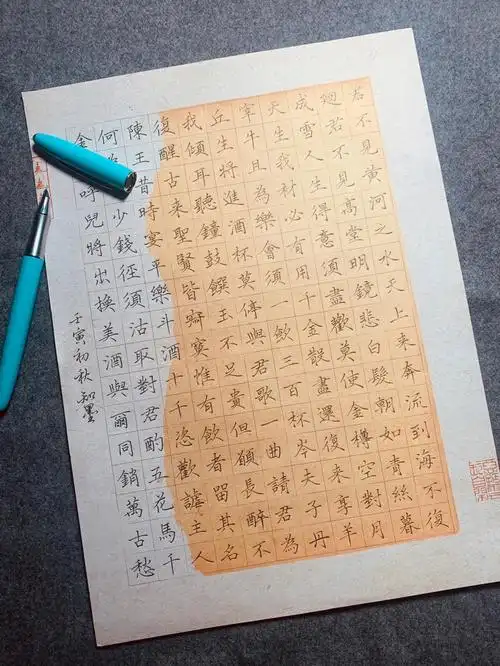 君不見黃河之水天上来奔流到海不復
迴君不見高堂明鏡悲白髮朝如青絲暮
成雪人生得意須盡歡莫使金樽空對月
天生我材必有用千金散盡還復来享羊
宰牛且為樂會須一飲三百杯岑夫子丹
丘生將進酒杯莫停與君歌一曲請君為
我傾耳聽鐘鼓饌玉不足貴但願長醉不
復醒古来聖賢皆寂寞惟有飲者留其名
陳王昔時宴平樂斗酒十千恣歡謔主人
何少錢徑須沽取對君酌五花馬千
金呼兒將出換美酒與爾同銷萬古愁
壬寅初秋知墨